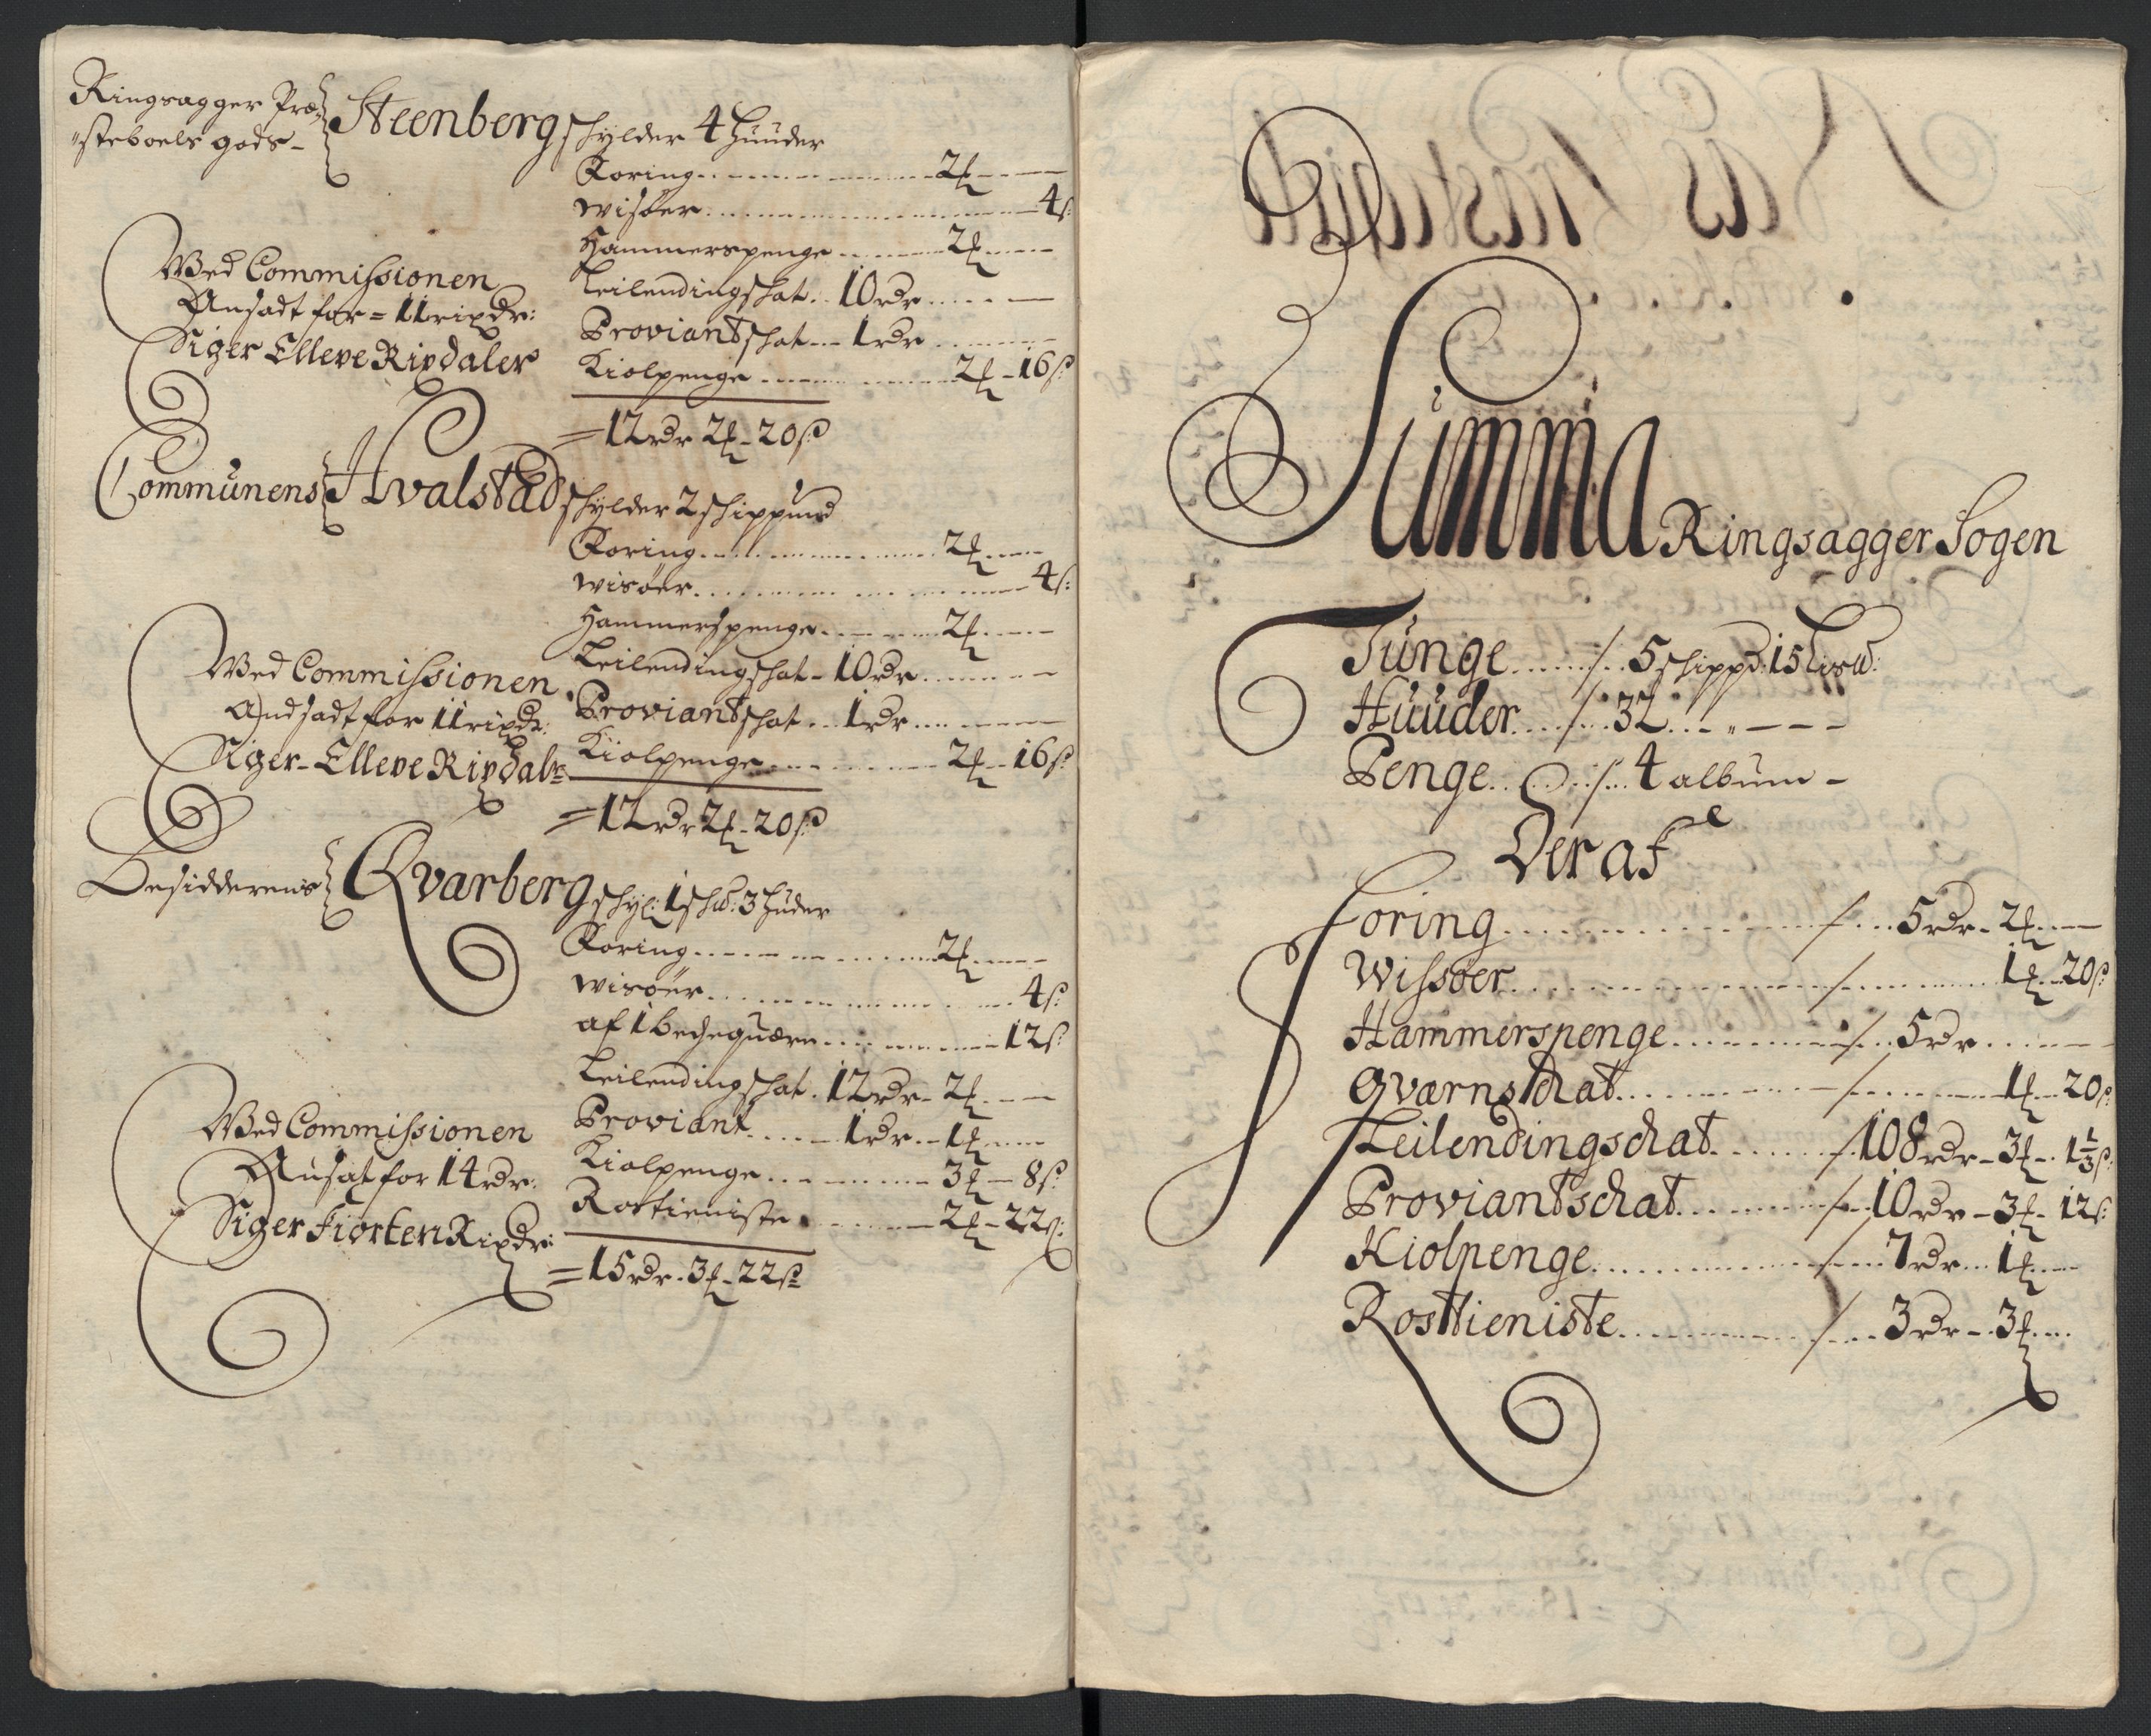 Ringsagger Præ-
"steboels gods-
Steenberg schylder 4 Huuder
Foring 2 ₰
Wisøer 4 s:
Hammerspenge 2 ₰
Leilendingschat 10 rdr
Proviantschat 1 rdr
Kiolpenge 2 ₰ - 16 s:
= 12 rdr 2 ₰ - 20 s:
Wed Commissionen
Ansadt for = 11 rixdr:
Siger Elleve Rixdaler
Communens Hvalstad schylder 2 schippund
Foring 2 ₰
Wisøer 4 s:
Hammerspenge 2 ₰
Leilendingschat - 10 rdr
Proviantschat 1 rdr
Kiolpenge 2 ₰ - 16 s:
= 12 rdr 2 ₰ - 20 s:
Wed Commissionen
Andsadt for 11 rixdr:
Siger - Elleve Rixdalr
Besidderens Qvarberg schyl: 1 schd: 3 Huder
Foring 2 ₰
Wisøer 4 s:
af 1 bechequærn 12 s:
Leilendingschat 12 rdr - 2 ₰
Proviant 1 rdr - 1 ₰
Kiolpenge 3 ₰ - 8 s:
Rostieniste 2 ₰ - 22 s:
= 15 rdr - 3 ₰ - 22 s:
Wed Commissionen
Ansat for 14 rdr:
Siger Fiorten Rixdr:
Summa Ringsagger Sogen
Tunge 5 schippd: 15 Lisd:
Huuder 32
Penge 4 album -
Deraf
Foring 5 rdr - 2 ₰
Wissøer 1 ₰ - 20 s:
Hammerspenge 5 rdr
Qværnschat 1 ₰ - 20 s:
Leilendingschat 108 rdr - 3 ₰ - 1 1/3 s:
Proviantschat 10 rdr - 3 ₰ - 12 s:
Kiolpenge 7 rdr 1 ₰
Rosttieniste 3 rdr - 3 ₰